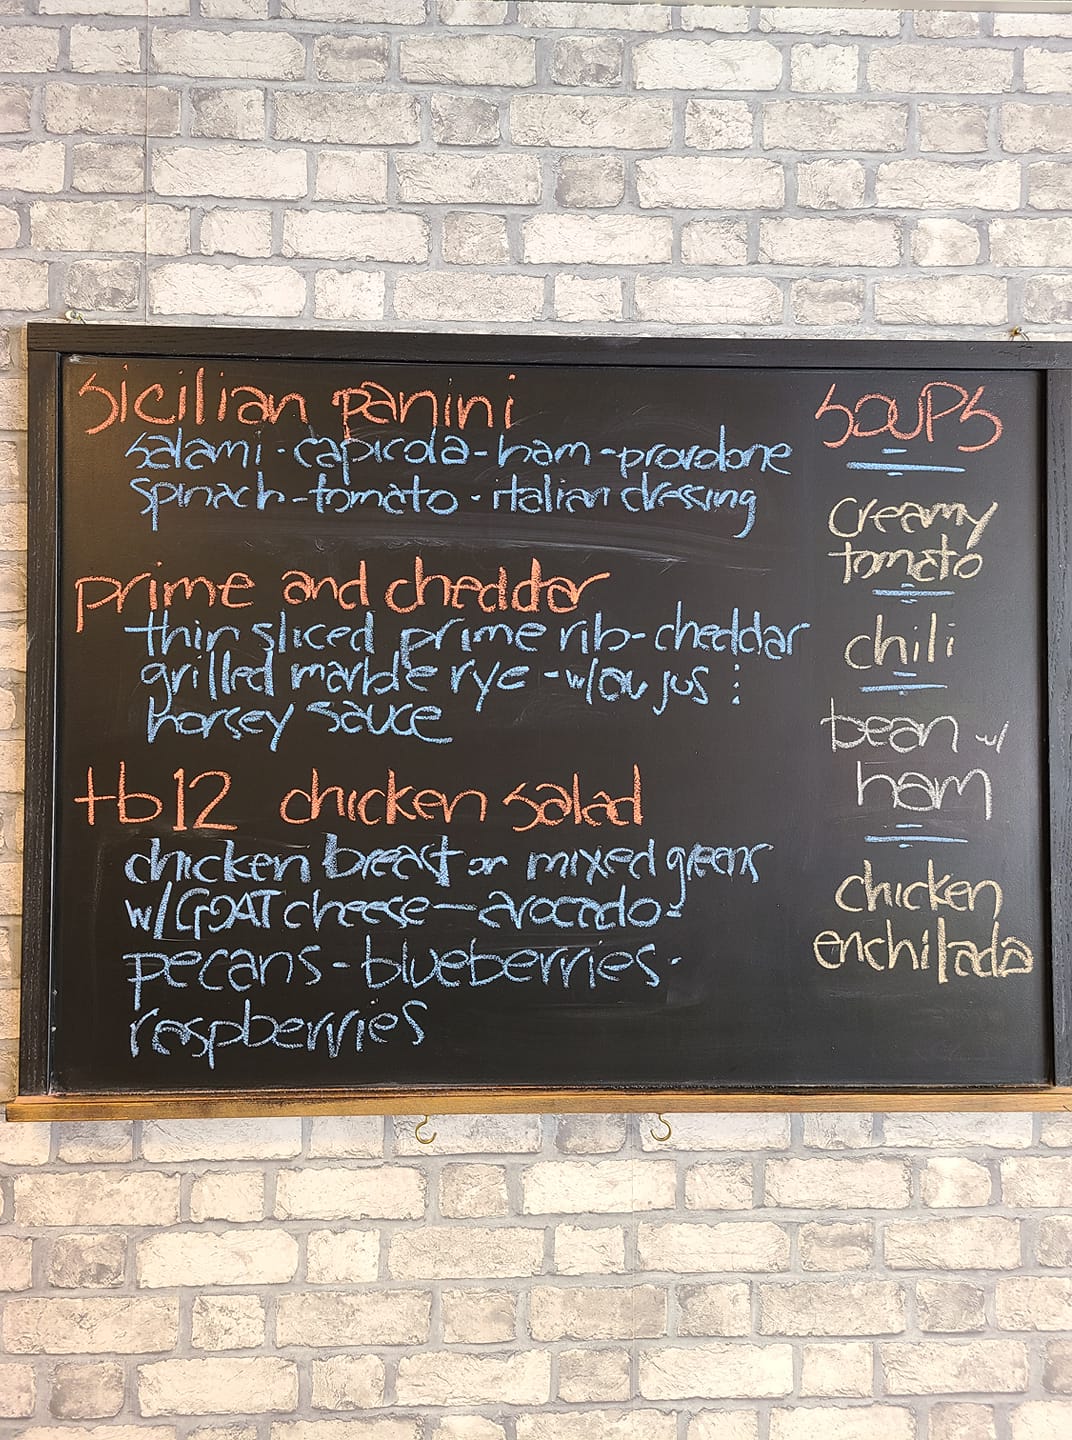 sicilian panini
salami - capicola - ham - provolone
spinach - tomato - italian dressing
prime and cheddar
thin sliced prime rib - cheddar
grilled marble rye - w/ au jus :
horsey sauce
tb12 chicken salad
chicken breast on mixed greens
w/ GOAT cheese - avocado -
pecans - blueberries -
raspberries
SOUPS
creamy
tomato
chili
bean w/
ham
chicken
enchilada